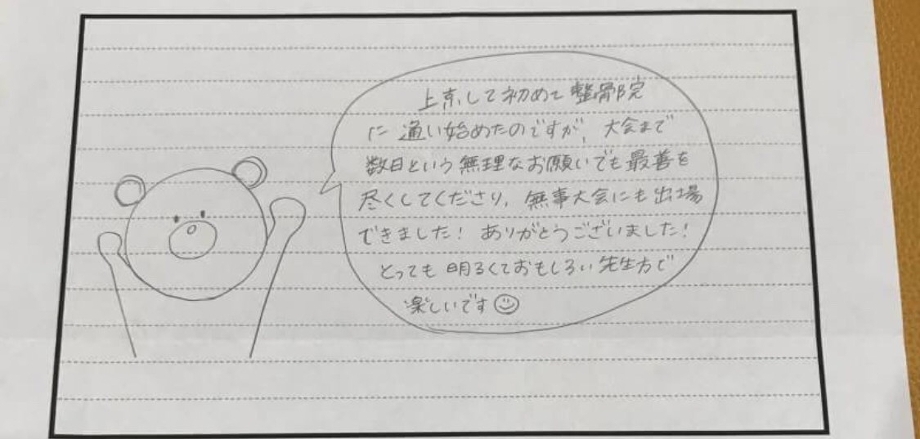 上京して初めて整骨院
に通い始めたのですが、大会まで
数日という無理なお願いでも最善を
尽くしてくださり、無事大会にも出場
できました！ありがとうございました！
とっても明るくておもしろい先生方で
楽しいです☺